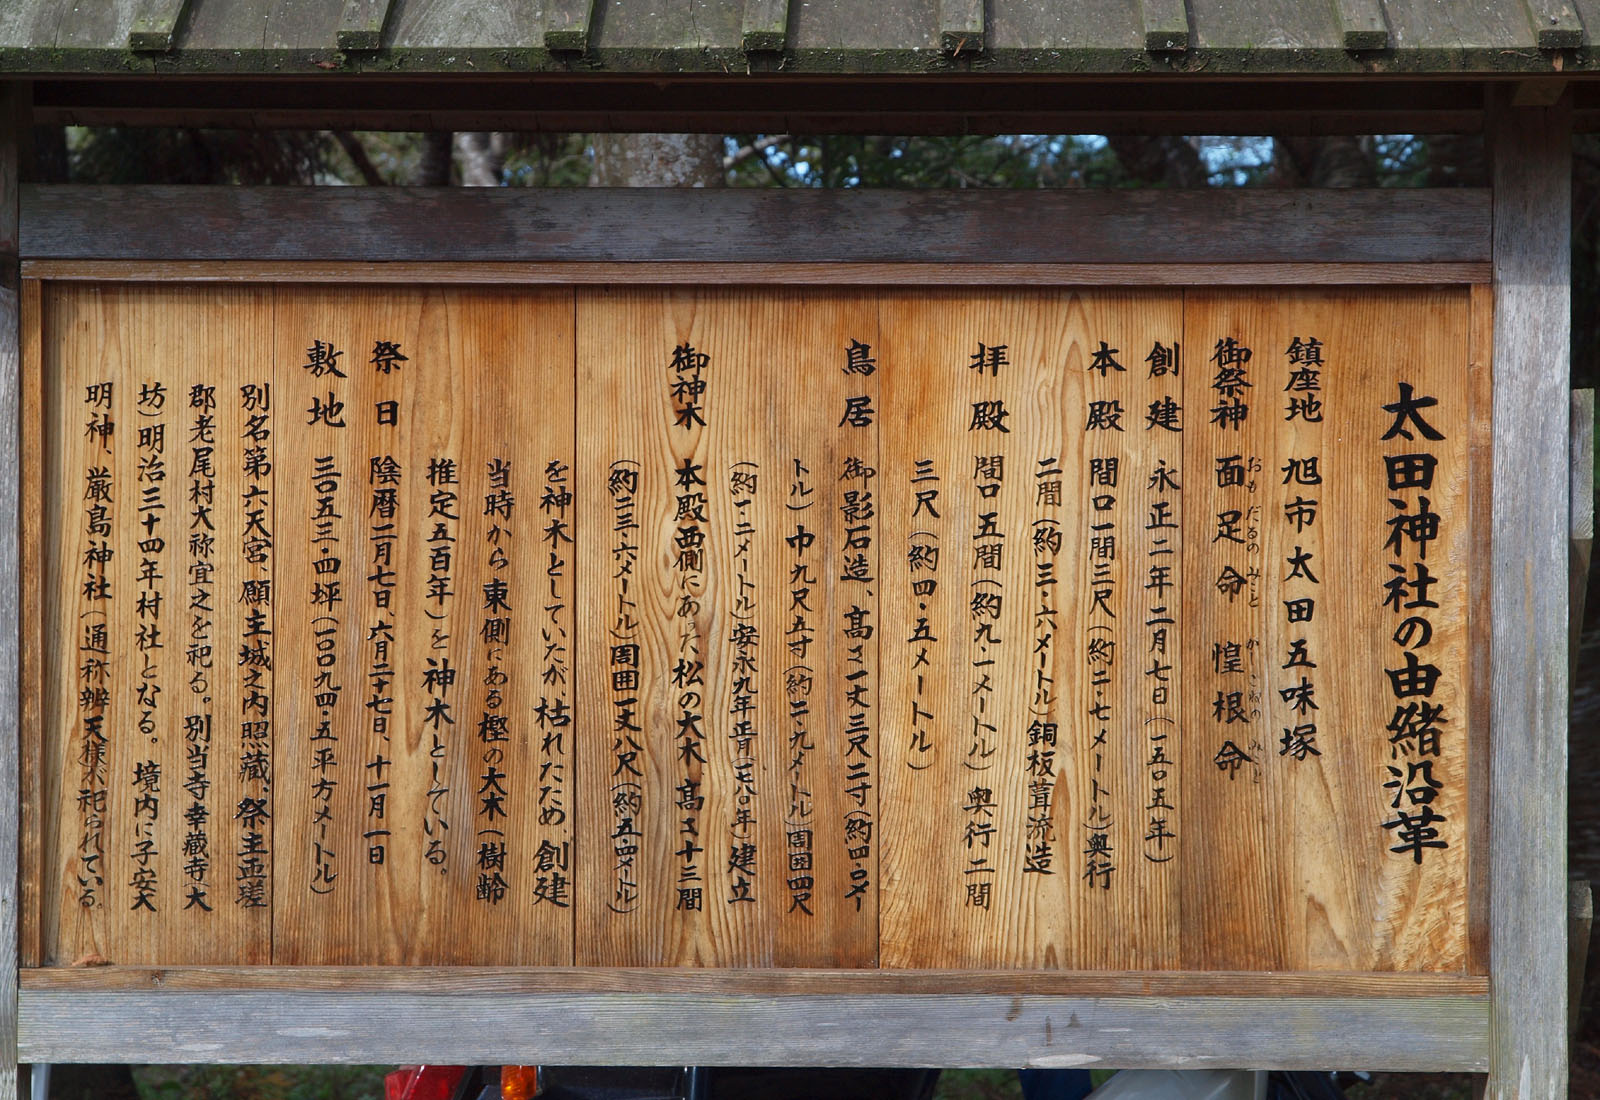 太田神社の由緒沿革
鎮座地 旭市太田五味塚
御祭神 面足命 惶根命
おもだるのみこと かしこねのみこと
創建 永正二年二月七日(一五〇五年)
本殿 間口一間三尺(約二・七メートル)奥行
二間(約三・六メートル)銅板葺流造
拝殿 間口五間(約九・一メートル)奥行二間
三尺(約四・五メートル)
鳥居 御影石造、高さ一丈三尺二寸(約四・〇メー
トル)巾九尺五寸(約二・九メートル)周囲四尺
(約一・二メートル)安永九年正月(一七八〇年)建立
御神木 本殿西側にあった松の大木、高さ十三間
(約二三・六メートル)周囲一丈八尺(約五・四メートル)
を神木としていたが、枯れたため、創建
当時から東側にある樫の大木(樹齢
推定五百年)を神木としている。
祭日 陰暦二月七日、六月二十七日、十一月一日
敷地 三〇五三・四坪(一〇〇九四・五平方メートル)
別名第六天宮、願主城之内照蔵、祭主匝瑳
郡老尾村大祢宜之を祀る。別当寺幸蔵寺(大
坊)明治三十四年村社となる。境内に子安大
明神、厳島神社(通称辨天様が祀られている。